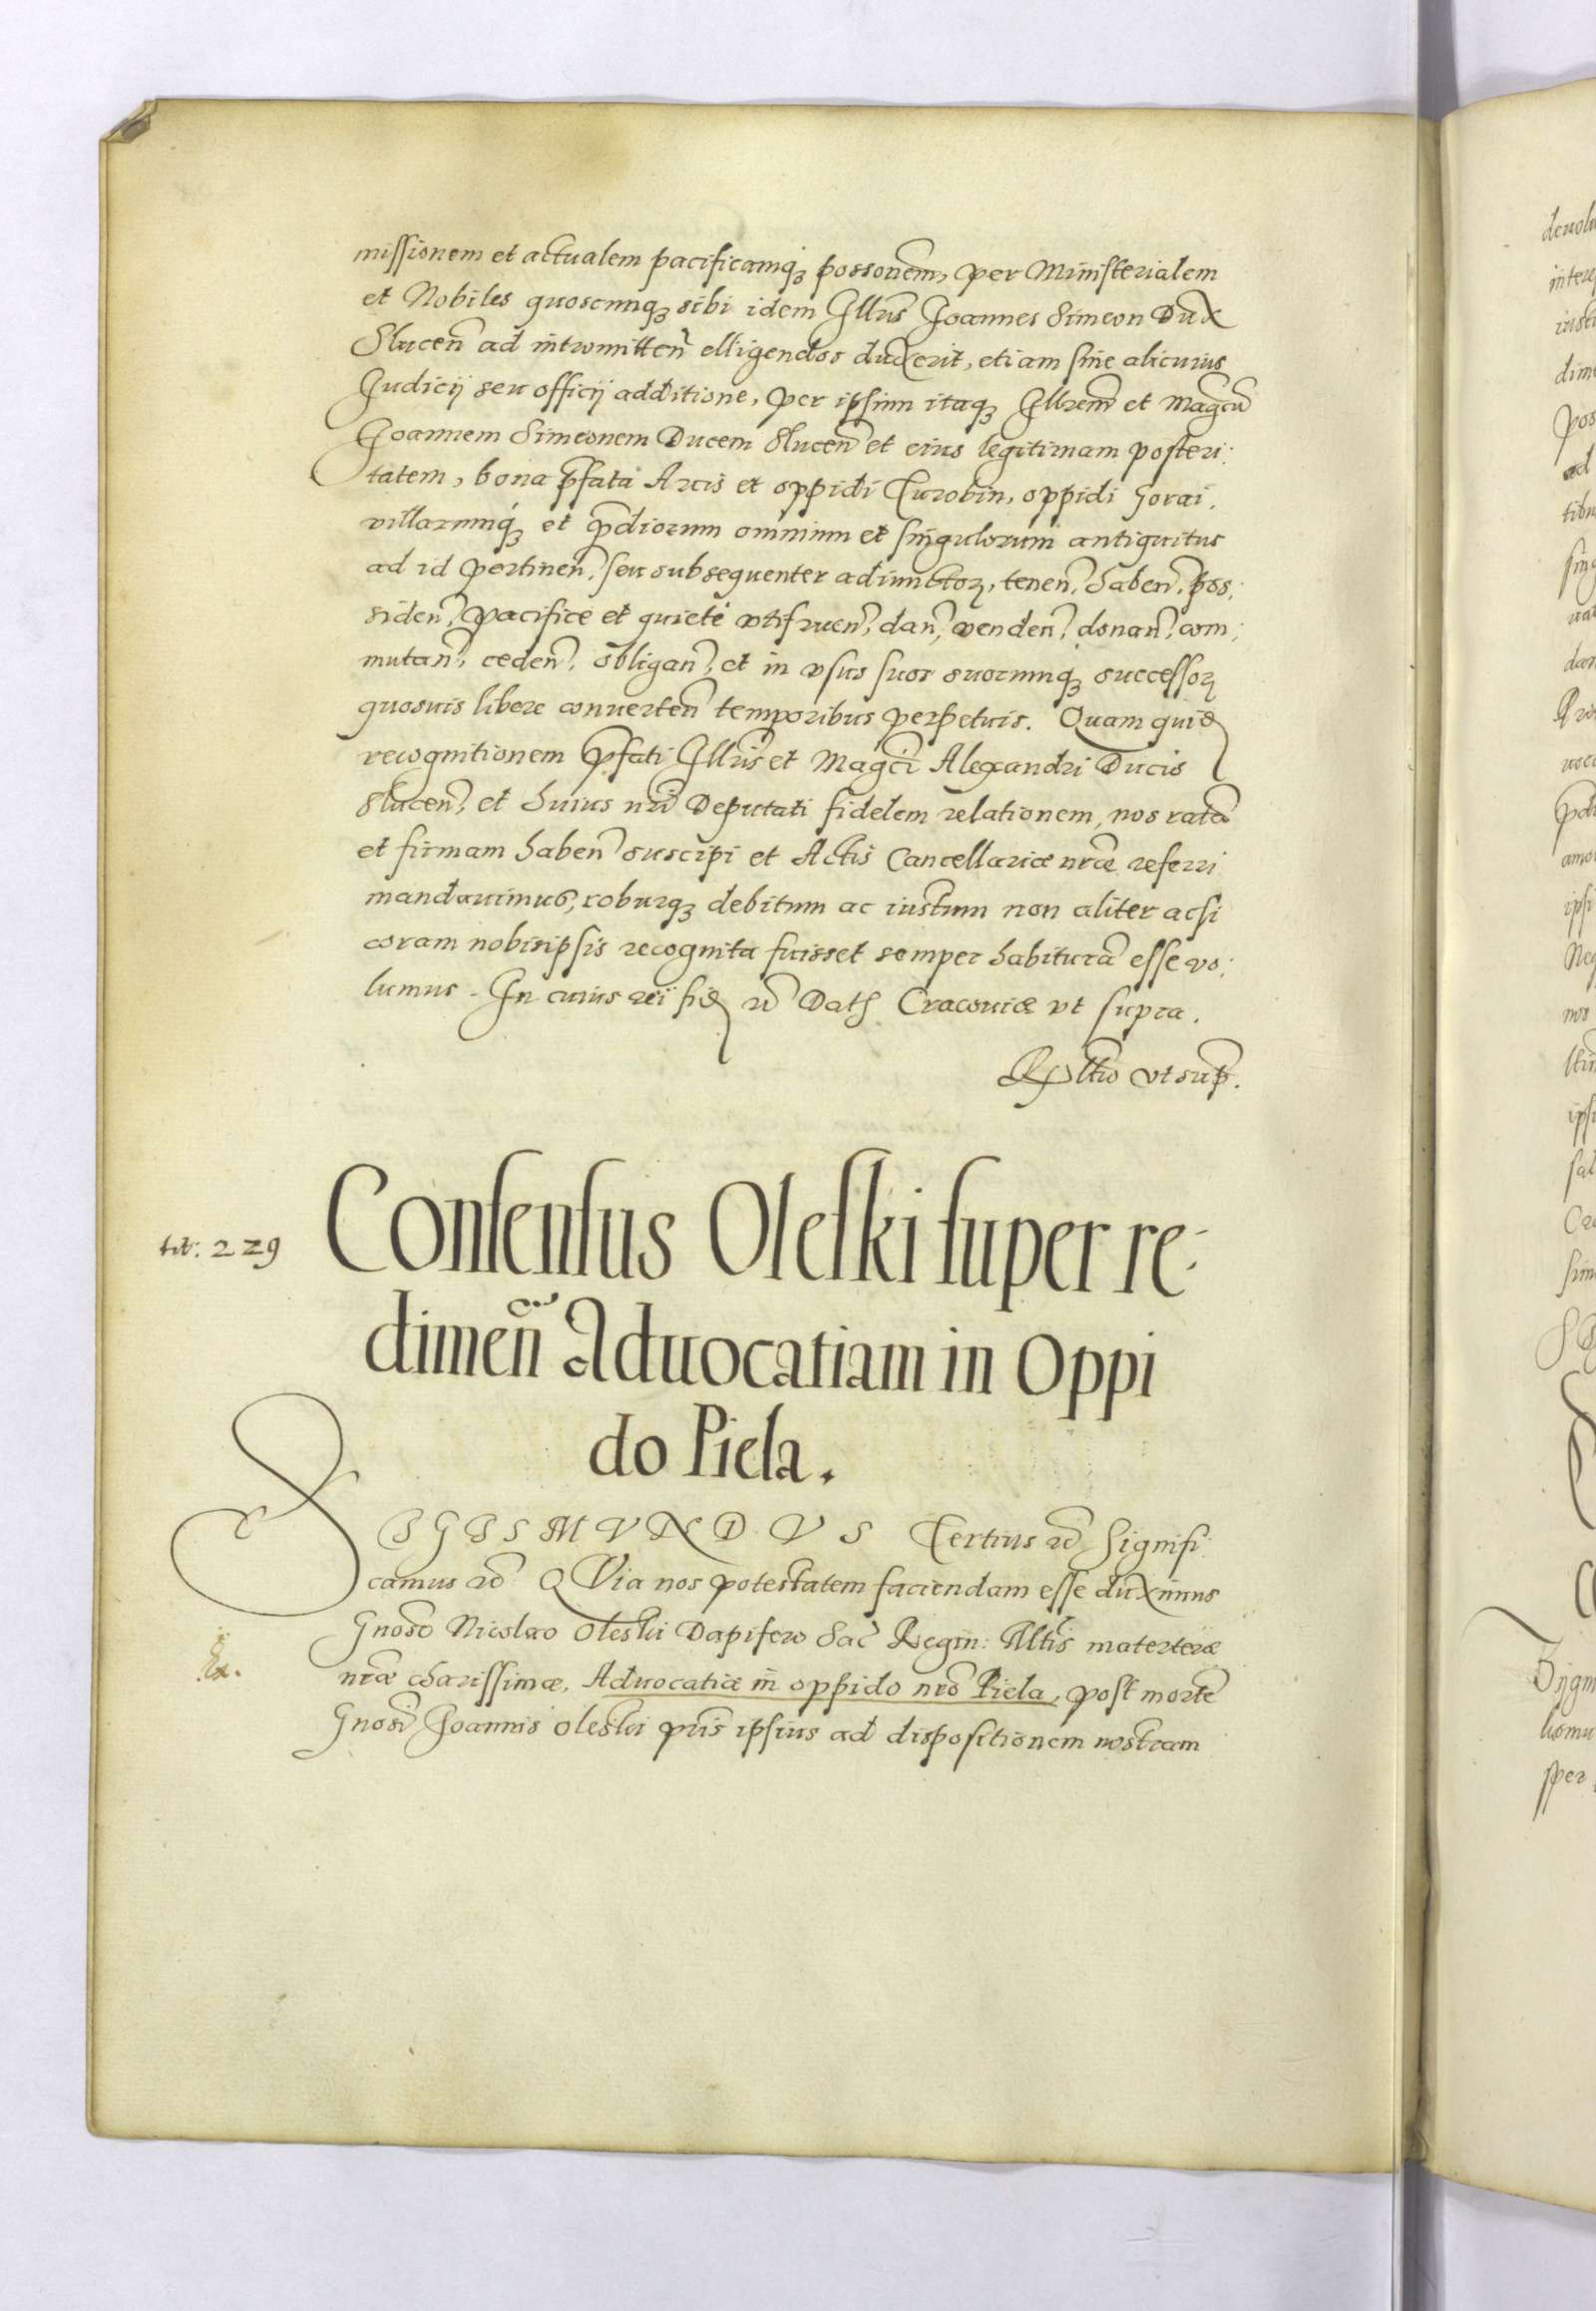 missionem et actualem pacificamq₃ possonem̄, per Ministerialem
et Nobiles quoscunq₃ sibi idem Illrīs Joannes Simeon Dux
Slucen̄ ad intromitten̄ elligendos duxerit, etiam sine alicuius
Judicij seu officij additione, per ipsum itaq₃ Illrem̄ et Magcū
Joannem Simeonem Ducem Slucen̄ et eius legitimam posteri:
tatem, bona p̄fata Arcis et oppidi Turobin, oppidi Gorai,
villarumq₃ et p̄diorum omnium et singulorum antiquitus
ad id pertinen̄, seu subsequenter adiunctoꝝ, tenen̄, haben̄, pos:
siden̄, pacifice et quietè vtifruen̄, dan̄, venden̄, donan̄, com:
mutan̄, ceden̄, obligan̄, et in vsus suos suorumq₃ successoꝝ
quosuis libere conuerten̄ temporibus perpetuis. Quam quid
recognitionem p̄fati Illrīs et Magcī Alexandri Ducis
Slucen̄, et huius nrī Deputati fidelem relationem, nos ratā
et firmam haben̄ suscipi et Actis Cancellariæ nrǣ referri
mandauimus, roburq₃ debitum ac iustum non aliter acsi
coram nobisipsis recognita fuisset semper habiturā esse vo:
lumus. In cuius rei fid Dat Cracouiæ vt supra.
vt sup̄.
tit: 229
Consensus Oleski super re-
dimen̄ Aduocatiam in Oppi
do Piela.
SIGISMVNDVS Tertius Signifi:
camus QVia nos potestatem faciendam esse duximus
Gnoso Nicolao Oleski Dapifero Sac̄ Regin: Mltis materteræ
nrǣ charissimæ, Aduocatiæ in oppido nrō Piela, post mortē
Gnosi Joannis Oleski pr̄is ipsius ad dispositionem nostram